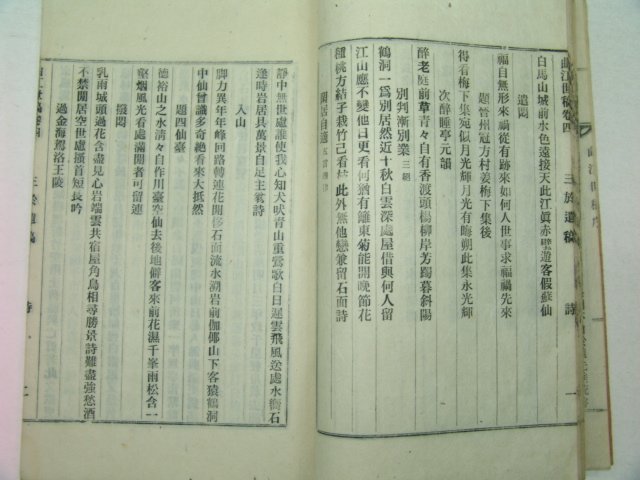 曲江世稿卷四
三於遺稿　詩
白馬山城前水色遠接天此江眞赤壁遊客假蘇仙
遣悶
福自無形來禍從有跡來如何人世事求福禍先來
題晉州冠方村姜梅下集後
得看梅下集宛似月光輝月光有晦朔此集永光輝
次醉睡亭元韻
醉老庭前草靑々自有香渡頭楊柳岸芳躅暮斜陽
別判漸別業 三絕
鶴洞一爲別居然近十秋白雲深處屋借與何人留
江山應不變他日更看何猶有離東菊能開晩節花
種桃方結子栽竹己看 此外無他戀兼留石面詩
閒居自適
靜中無世處誰使我心知犬吠靑山重鶯歌白日遲雲飛風送處水衝石
逢時岩居具萬景自足主翁詩
入山
脚力異年年峰回路轉連花開侈石面流水溯岩前伽倻山下客猿鶴洞
中仙曾識多奇絶看來大抵然
題四仙臺
德裕山之水淸々自作川臺空仙去後地僻客來前花濕千峯雨松含一
壑烟風光看處滿閒者可留連
撥悶
乳雨城頭過花含盡見心岩端雲共宿屋角鳥相尋勝景詩難盡強愁酒
不禁閒居空世慮搔首短長吟
過金海駕洛王陵
三於遺稿　詩　二